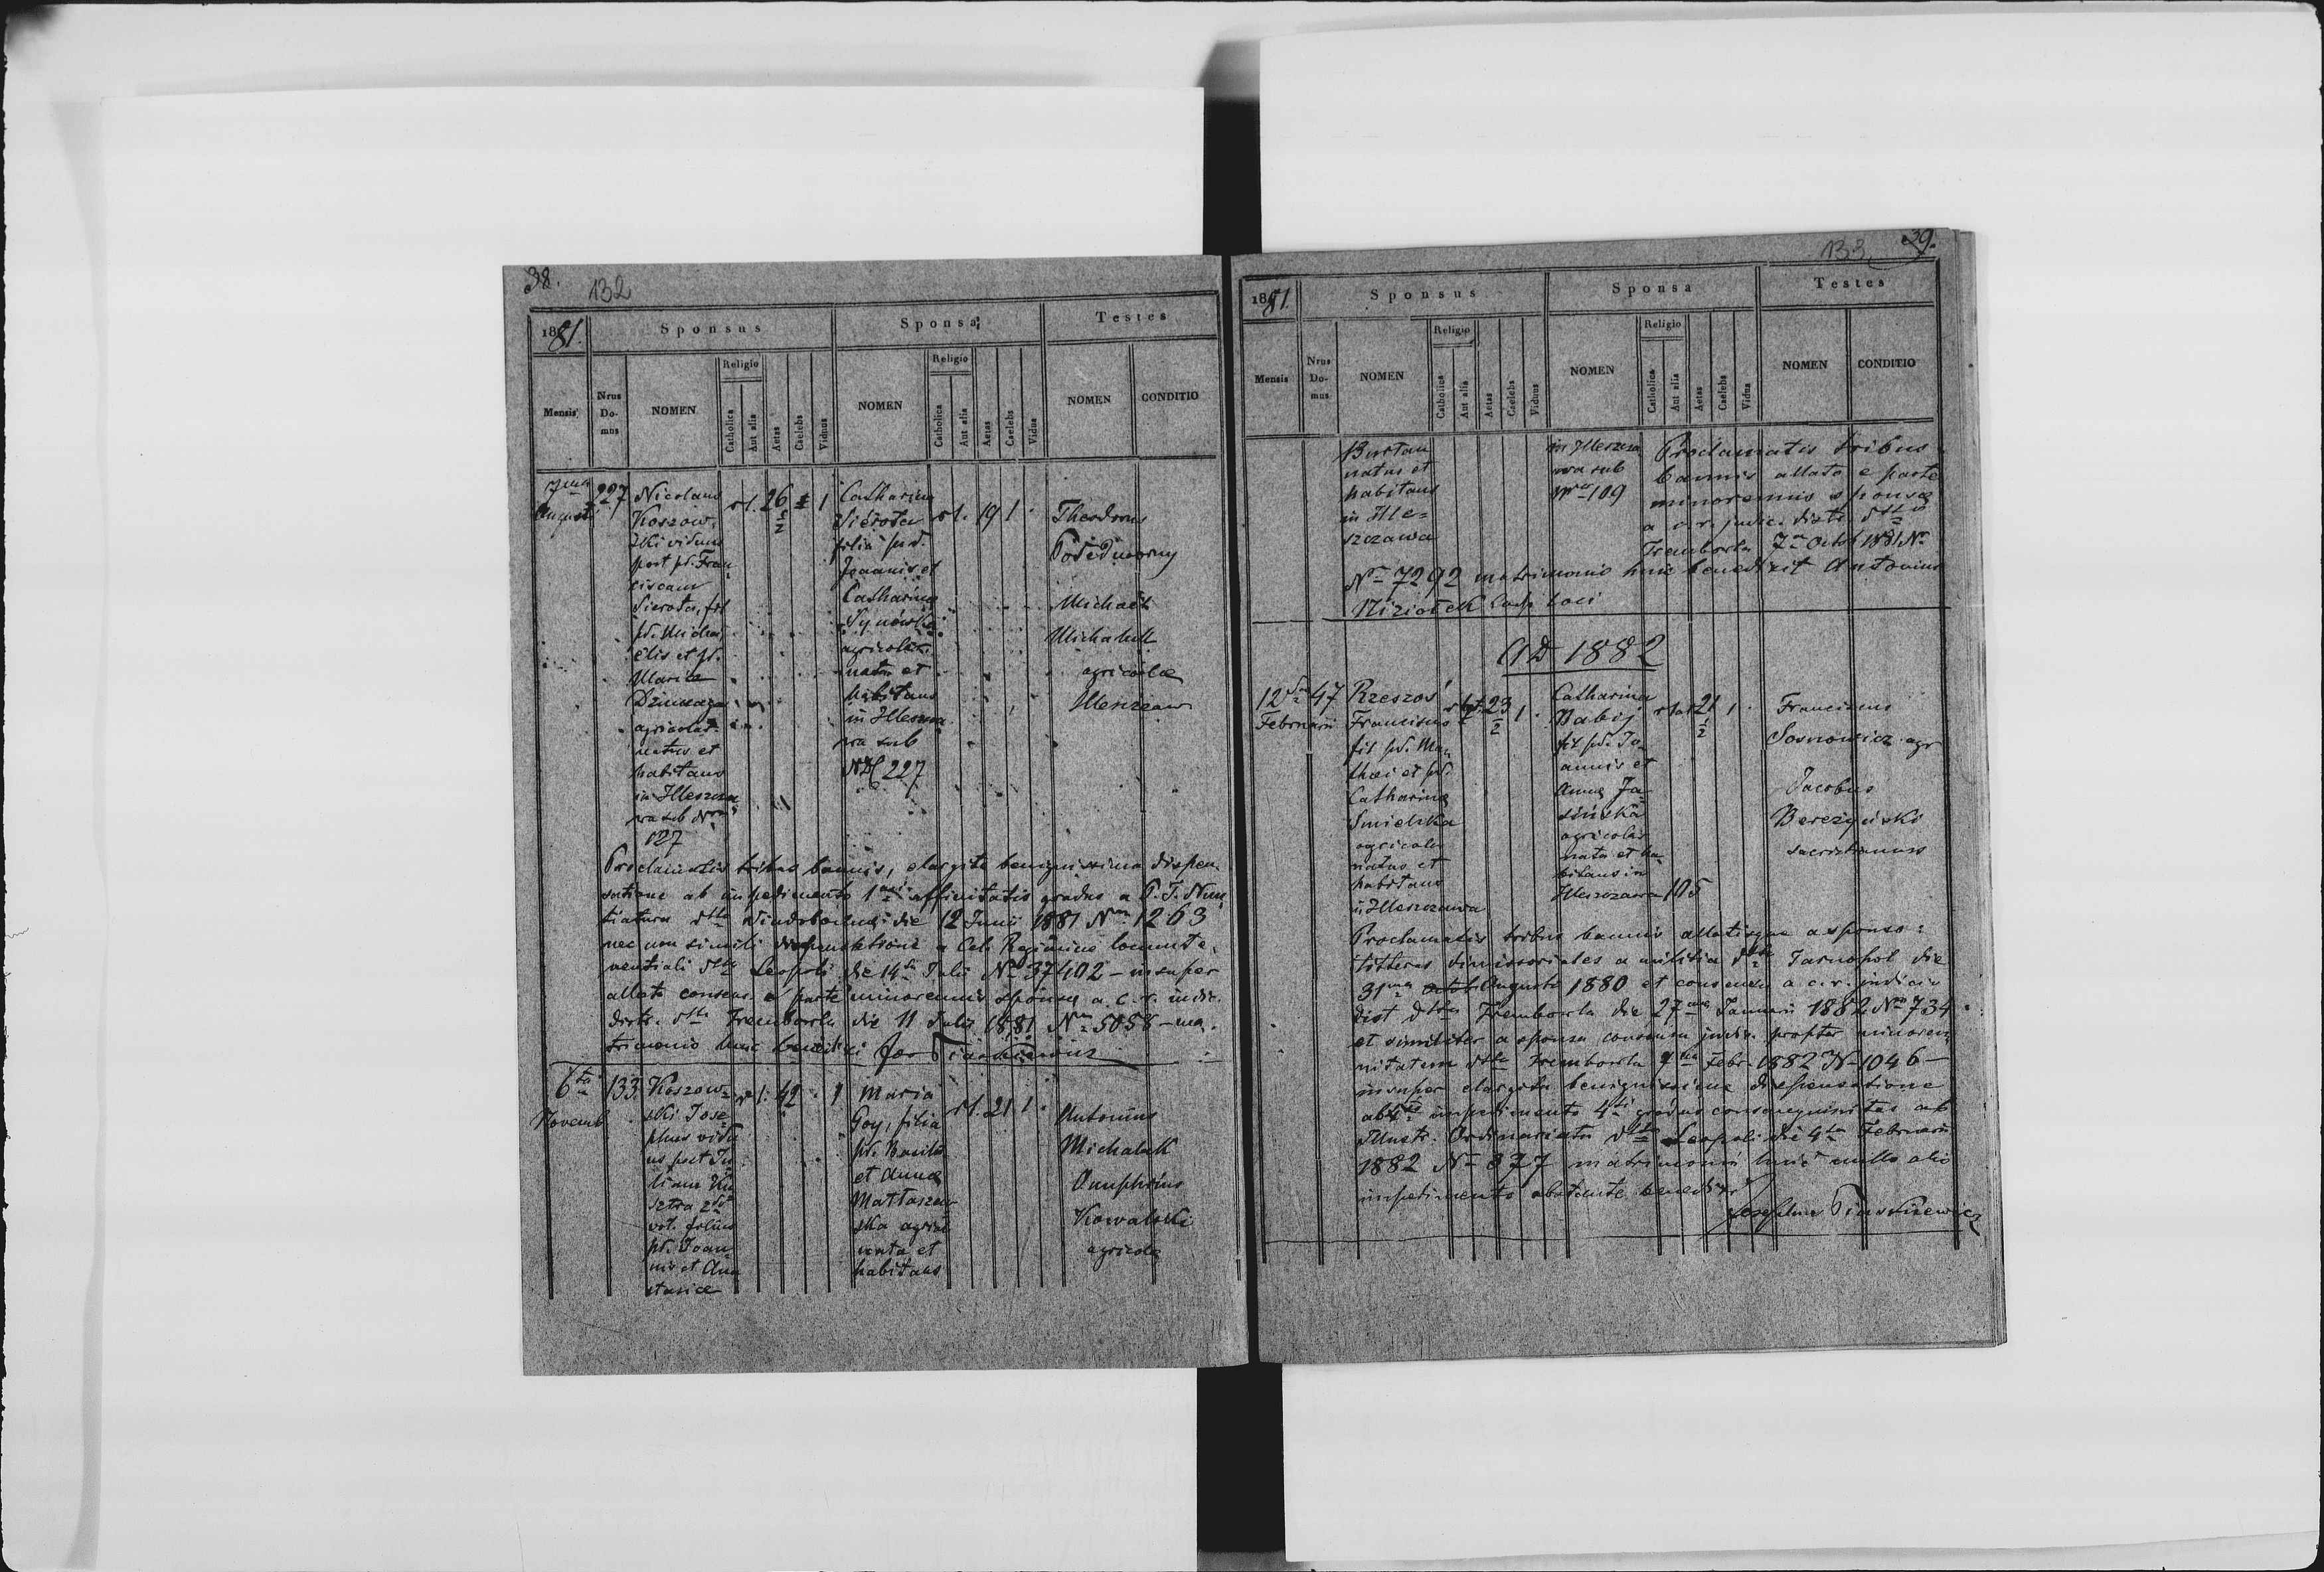 38.
132
1881.
Sponsus
Sponsa
Testes
Mensis
Nrus Domus
NOMEN
Religio
Catholica
Aut alia
Aetas
Caelebs
Viduus
NOMEN
Religio
Catholica
Aut alia
Aetas
Caelebs
Vidua
NOMEN
CONDITIO
7ma
Augusti
227
Nicolaus
Koszow-
ski viduus
post pd. Fran
ciscam
Sierota, fil
pd. Micha
elis et pd.
Mariæ
agricolar.
natus et
habitans
in Illeszcza
wa sub Nro
127
rl. 26
1
Catharina
Sierota
filia pd.
Joannis et
Catharina
agricolar.
nata et
habitans
in Illeszcza
wa sub
227
rl. 19 1
Theodorus
Michaël
Michałek
agricolæ
Proclamatis tribus bannis, elargita benignissima dispen-
satione ab impedimento 1mi affinitatis gradus a P. T. Nun
tiatura dtto Vindobonæ die 12 Junii 1881 Nro 1263
nec non simili dispensatione a Cels. Regimine locumte-
nentiali dtto Leopoli die 14ta Julii No 37402 – insuper
allato consens. e parte minorennis sponsæ a. c. r. judic.
distr. dtto Trembowla die 11 Julii 1881 Nro 5058 – ma-
trimonio huic benedixi
6ta
Novemb
133.
Koszow-
ski Jose
phus vidu
us post Ju
liana
2do
vot. filius
pd. Joan
nis et Ana
stasiæ
rl. 42 1
Maria
Goy, filia
pd. Basilii
et Annæ
Mattaszew
ska agricol
nata et
habitans
rl. 21 1
Antonius
Michałek
Onuphrius
Kowalski
agricolæ
133
39.
1881.
Sponsus
Sponsa
Testes
Mensis
Nrus Domus
NOMEN
Religio
Catholica
Aut alia
Aetas
Caelebs
Viduus
NOMEN
Religio
Catholica
Aut alia
Aetas
Caelebs
Vidua
NOMEN
CONDITIO
Burtan
natus et
habitans
in Ille-
szczawa
in Illeszcza
wa sub
Nro 109
Proclamatis tribus
bannis allato e parte
minorennis sponsæ
a c. r. judic. distr. dtto
Trembowla 7ma Octob 1881 No
Nro 7292 matrimonio huic benedixit Antonius
Niziołek Coop loci
AD 1882
12ma
Februarii
47
Rzeszoś
Franciscus
fil pd. Mat
thæi et pd.
Catharina
Smielska
agricolar
natus et
habitans
in Illeszczawa
23 1
Catharina
Babij
fil pd. Jo
annis et
Annæ Ja
sińska
agricolar
nata et ha
bitans in
Illeszczawa 105
21 1
Franciscus
Sosnowicz agr
Jacobus
Bereżyński
sacristianus
Proclamatis tribus bannis allatisque a sponso:
litteras dimissoriales a militia dtto Tarnopol die
31ma Augusti 1880 et consensu a c. r. judicio
dist dtto Trembowla die 27ma Januarii 1882 No 734
et similiter a sponsa consensu judic. propter minoren
nitatem dtto Trembowla 9na Febr 1882 No 1046 –
insuper elargita benignissime dispensatione
ab impedimento 4ti gradus consanguinitas ab
Illustr. Ordinariatu dtto Leopoli die 4ta Februarii
1882 No 877 matrimonii huic nullo alio
impedimento obstante benedixi